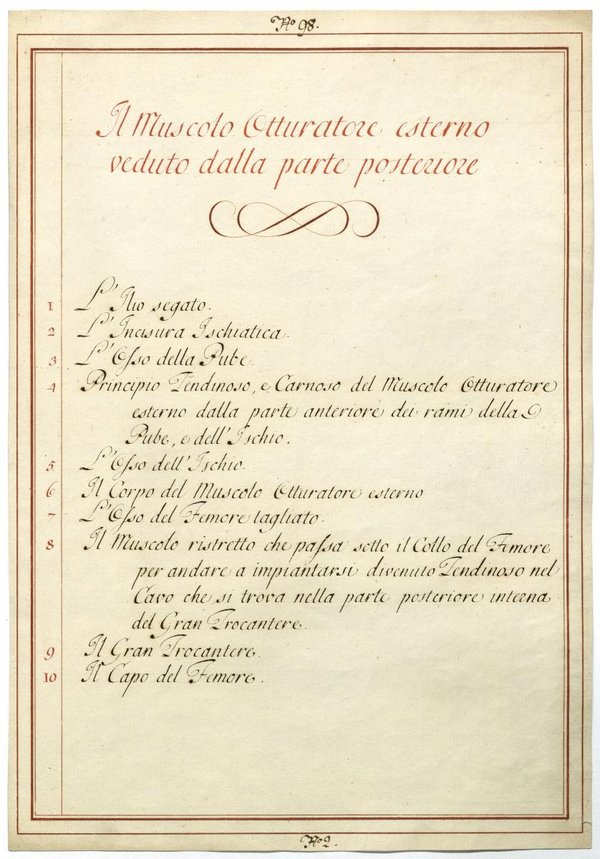 Nº 98.
Il Muscolo Otturatore esterno
veduto dalla parte posteriore
1 L' Ilio segato.
2 L' Incisura Ischiatica.
3 L' Oſso della Pube.
4 Principio Tendinoso, e Carnoso del Muscolo Otturatore
esterno dalla parte anteriore dei rami della
Pube, e dell' Ischio.
5 L' Oſso dell' Ischio.
6 Il Corpo del Muscolo Otturatore esterno
7 L' Oſso del Femore tagliato.
8 Il Muscolo ristretto che paſsa sotto il Collo del Femore
per andare a impiantarsi divenuto Tendinoso nel
Cavo che si trova nella parte posteriore interna
del Gran Trocantere.
9 Il Gran Trocantere.
10 Il Capo del Femore.
Nº 2.